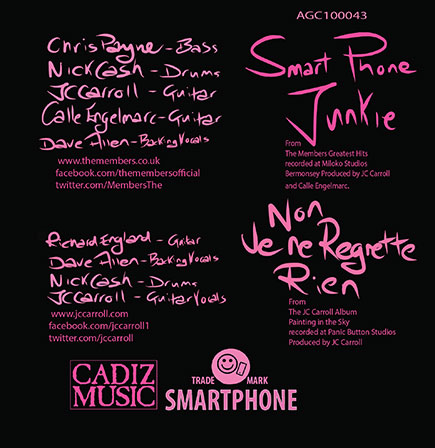 AGC100043
Chris Payne - Bass
Nick Cash - Drums
JC Carroll - Guitar
Calle Engelmarc - Guitar
Dave Allen - Backing Vocals
www.themembers.co.uk
facebook.com/themembersofficial
twitter.com/MembersThe
Smart Phone
Junkie
From
The Members Greatest Hits
recorded at Miloko Studios
Bermonsey Produced by JC Carroll
and Calle Engelmarc.
Richard England - Guitar
Dave Allen - Backing Vocals
Nick Cash - Drums
JC Carroll - Guitar Vocals
www.jccarroll.com
facebook.com/jccarroll1
twitter.com/jccarroll
Non
Je ne Regrette
Rien
From
The JC Carroll Album
Painting in the Sky
recorded at Panic Button Studios
Produced by JC Carroll
CADIZ
MUSIC
TRADE MARK
SMARTPHONE